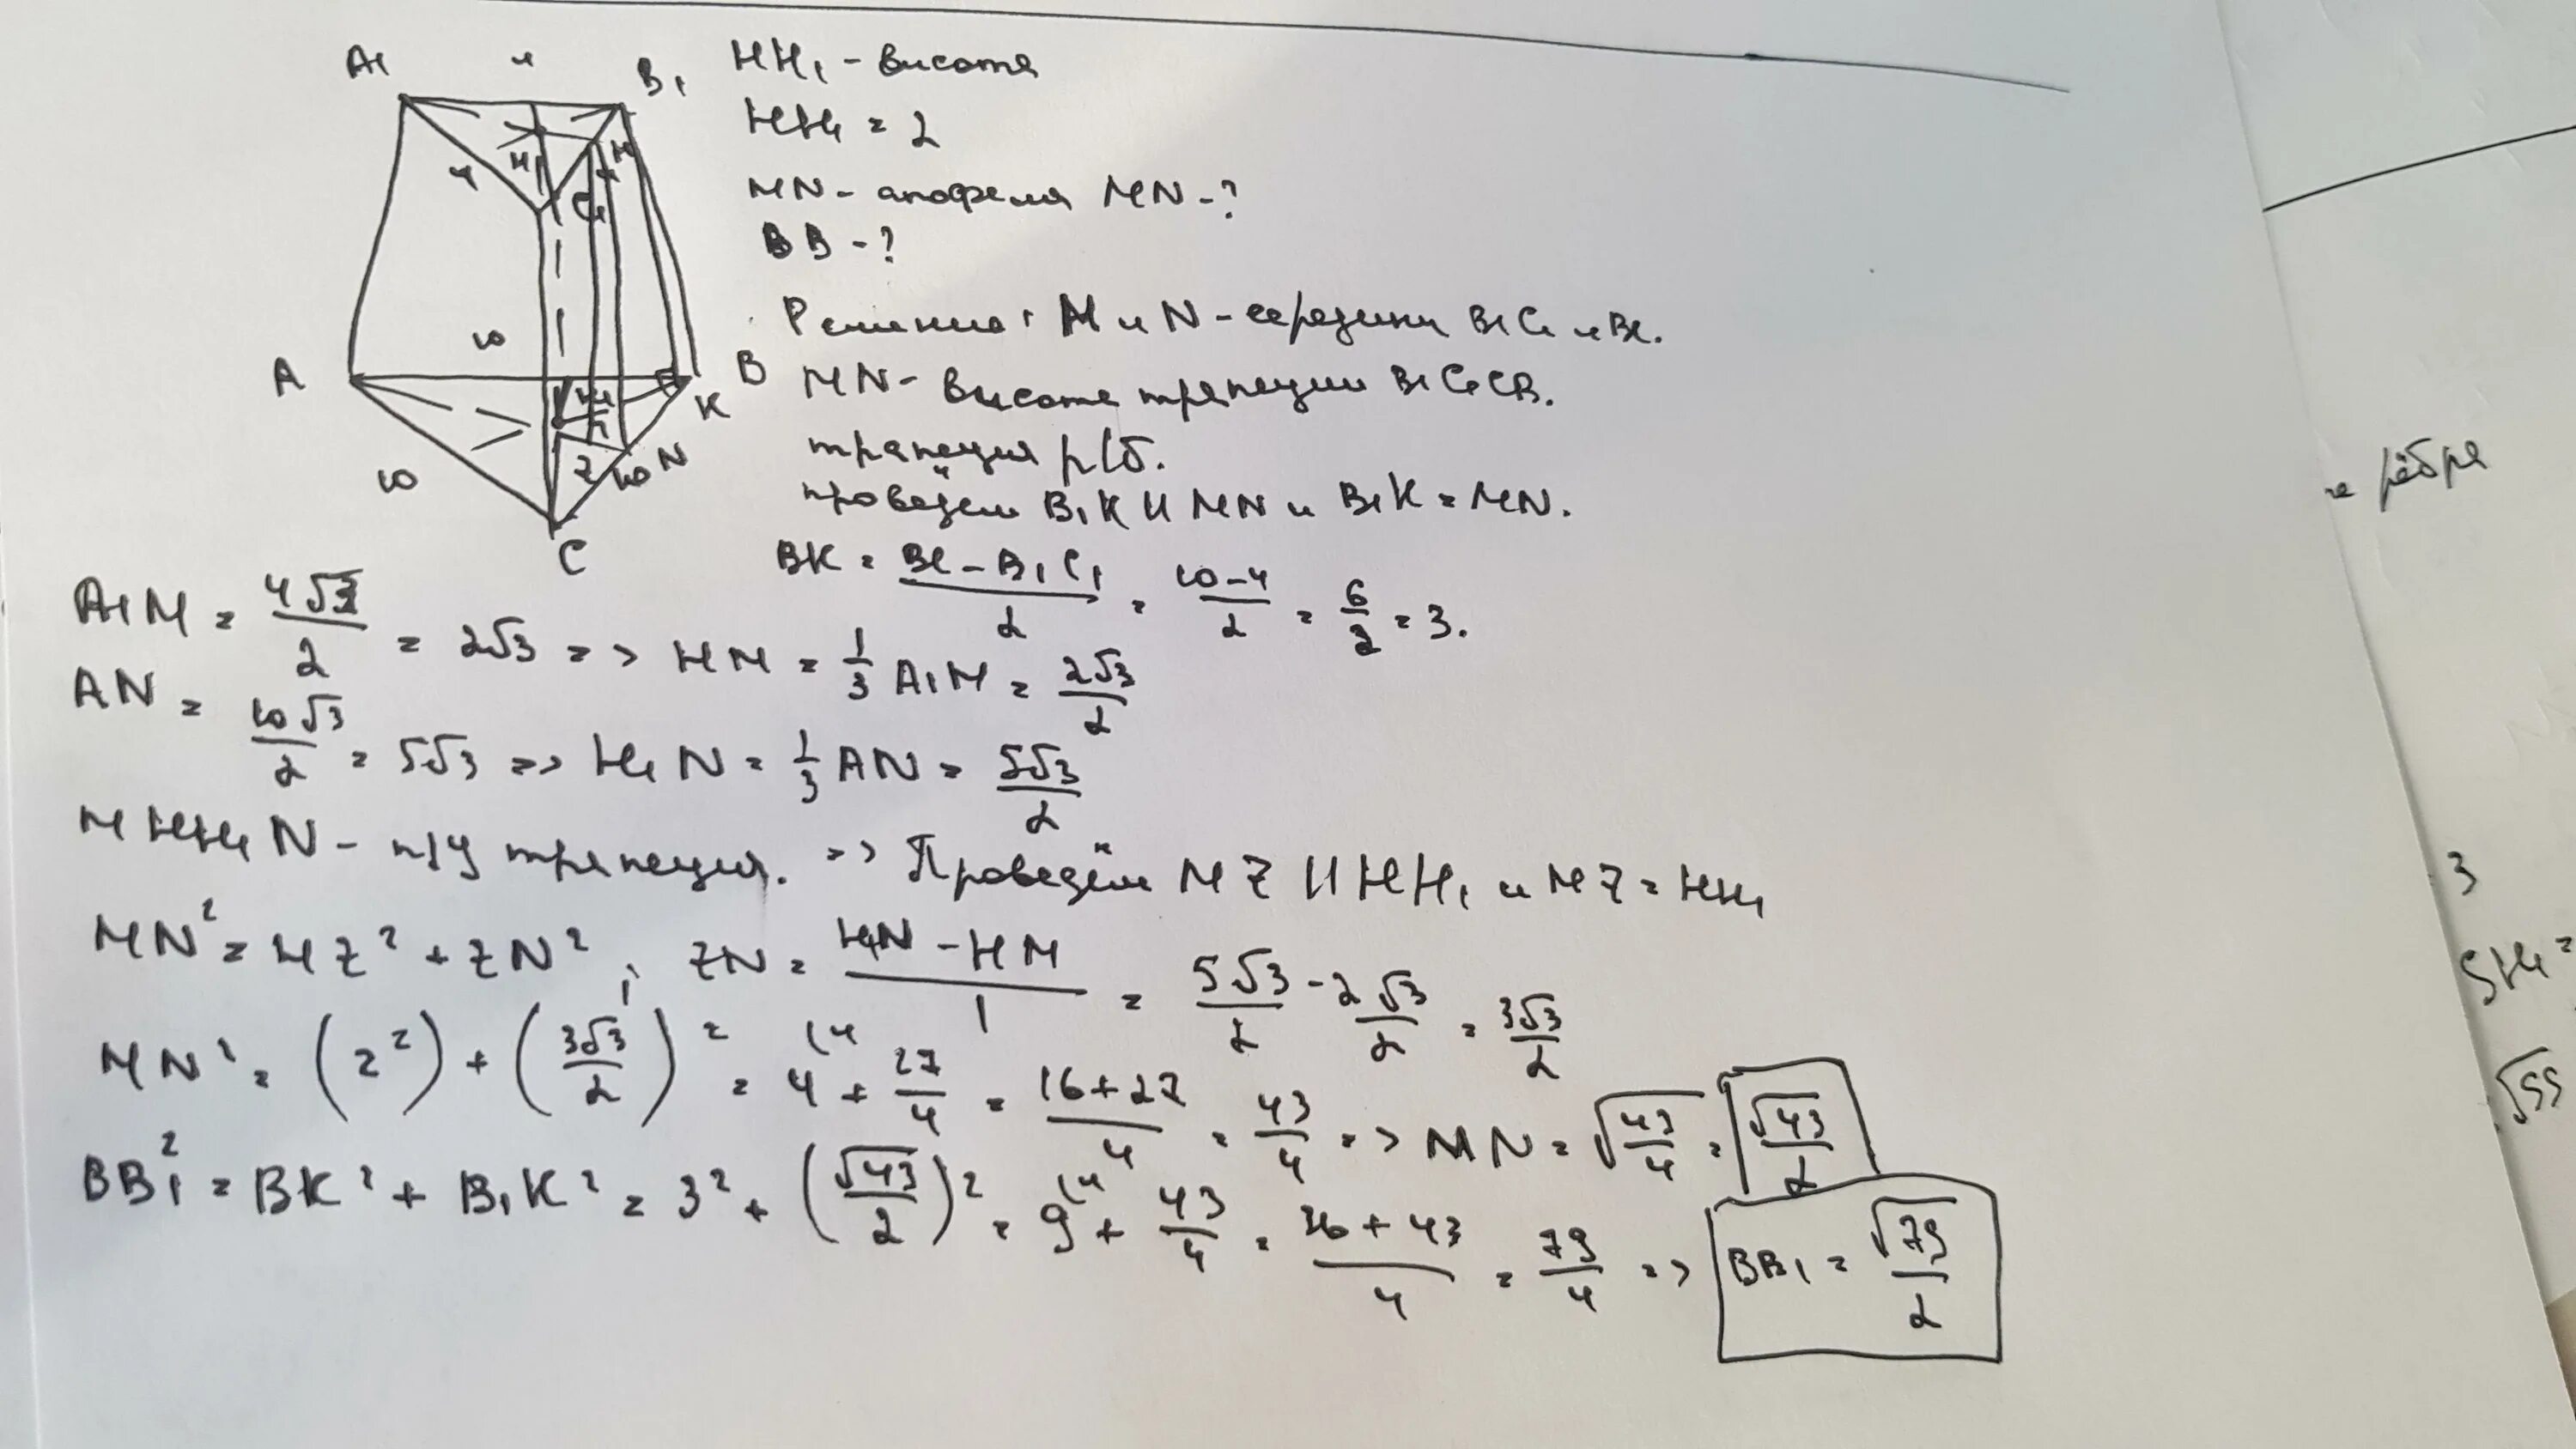 A₁ 4 B₁
H₁ M
4 C₁
10
A B
H K
10 Z 10 N
C
HH₁ - висота
HH₁ = 2
MN - апофема MN - ?
BB - ?
Решение: M и N - середины B₁C₁ и BC.
MN - высота трапеции B₁C₁CB.
трапеция р/б.
проведём B₁K || MN и B₁K = MN.
BK = (BC - B₁C₁)/2 = (10-4)/2 = 6/2 = 3.
A₁M = 4√3/2 = 2√3 => HM = 1/3 A₁M = 2√3/2
AN = 10√3/2 = 5√3 => H₁N = 1/3 AN = 5√3/2
MHH₁N - п/у трапеция. => Проведём MZ || HH₁ и MZ = HH₁
MN² = MZ² + ZN²; ZN = (H₁N - HM)/1 = 5√3/2 - 2√3/2 = 3√3/2
MN² = (2²) + (3√3/2)² = 4 (4 + 27/4 = (16+27)/4 = 43/4 => MN = √(43/4) = √43/2
BB₁² = BK² + B₁K² = 3² + (√43/2)² = 9 (4 + 43/4 = (36+43)/4 = 79/4 => BB₁ = √79/2
е ребра
3
SH₁²
√55